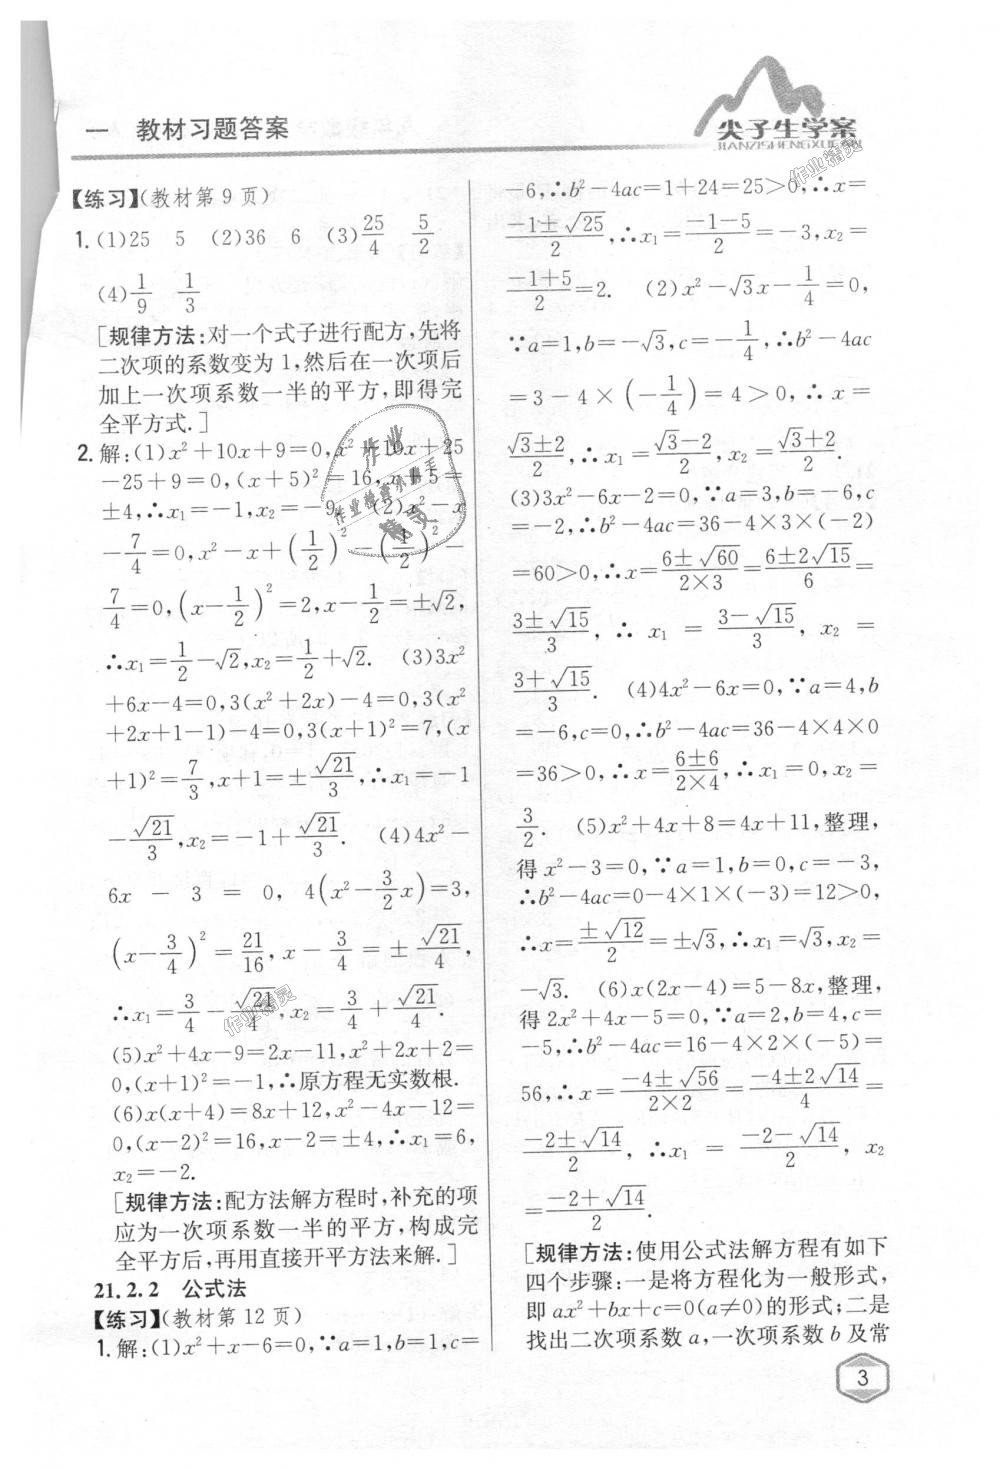 一 教材习题答案
尖子生学案
JIANZISHENGXUEAN
【练习】(教材第9页)
1. (1)25 5 (2)36 6 (3)25/4 5/2
(4)1/9 1/3
[规律方法:对一个式子进行配方,先将
二次项的系数变为1,然后在一次项后
加上一次项系数一半的平方,即得完
全平方式.]
2. 解:(1)x²+10x+9=0,x²+10x+25
-25+9=0,(x+5)²=16,x+5=
±4,∴x₁=-1,x₂=-9. (2)x²-x
-7/4=0,x²-x+(1/2)²-(1/2)²-
7/4=0,(x-1/2)²=2,x-1/2=±√2,
∴x₁=1/2-√2,x₂=1/2+√2. (3)3x²
+6x-4=0,3(x²+2x)-4=0,3(x²
+2x+1-1)-4=0,3(x+1)²=7,(x
+1)²=7/3,x+1=±√21/3,∴x₁=-1
-√21/3,x₂=-1+√21/3. (4)4x²-
6x-3=0,4(x²-3/2x)=3,
(x-3/4)²=21/16,x-3/4=±√21/4,
∴x₁=3/4-√21/4,x₂=3/4+√21/4.
(5)x²+4x-9=2x-11,x²+2x+2=
0,(x+1)²=-1,∴原方程无实数根.
(6)x(x+4)=8x+12,x²-4x-12=
0,(x-2)²=16,x-2=±4,∴x₁=6,
x₂=-2.
[规律方法:配方法解方程时,补充的项
应为一次项系数一半的平方,构成完
全平方后,再用直接开平方法来解.]
21.2.2 公式法
【练习】(教材第12页)
1. 解:(1)x²+x-6=0,∵a=1,b=1,c=
-6,∴b²-4ac=1+24=25>0,∴x=
(-1±√25)/2,∴x₁=(-1-5)/2=-3,x₂=
(-1+5)/2=2. (2)x²-√3x-1/4=0,
∵a=1,b=-√3,c=-1/4,∴b²-4ac
=3-4×(-1/4)=4>0,∴x=
(√3±2)/2,∴x₁=(√3-2)/2,x₂=(√3+2)/2.
(3)3x²-6x-2=0,∵a=3,b=-6,c
=-2,∴b²-4ac=36-4×3×(-2)
=60>0,∴x=(6±√60)/(2×3)=(6±2√15)/6=
(3±√15)/3,∴x₁=(3-√15)/3,x₂=
(3+√15)/3. (4)4x²-6x=0,∵a=4,b
=-6,c=0,∴b²-4ac=36-4×4×0
=36>0,∴x=(6±6)/(2×4),∴x₁=0,x₂=
3/2. (5)x²+4x+8=4x+11,整理,
得x²-3=0,∵a=1,b=0,c=-3,
∴b²-4ac=0-4×1×(-3)=12>0,
∴x=±√12/2=±√3,∴x₁=√3,x₂=
-√3. (6)x(2x-4)=5-8x,整理,
得2x²+4x-5=0,∵a=2,b=4,c=
-5,∴b²-4ac=16-4×2×(-5)=
56,∴x=(-4±√56)/(2×2)=(-4±2√14)/4=
(-2±√14)/2,∴x₁=(-2-√14)/2,x₂
=(-2+√14)/2.
[规律方法:使用公式法解方程有如下
四个步骤:一是将方程化为一般形式,
即ax²+bx+c=0(a≠0)的形式;二是
找出二次项系数a,一次项系数b及常
3